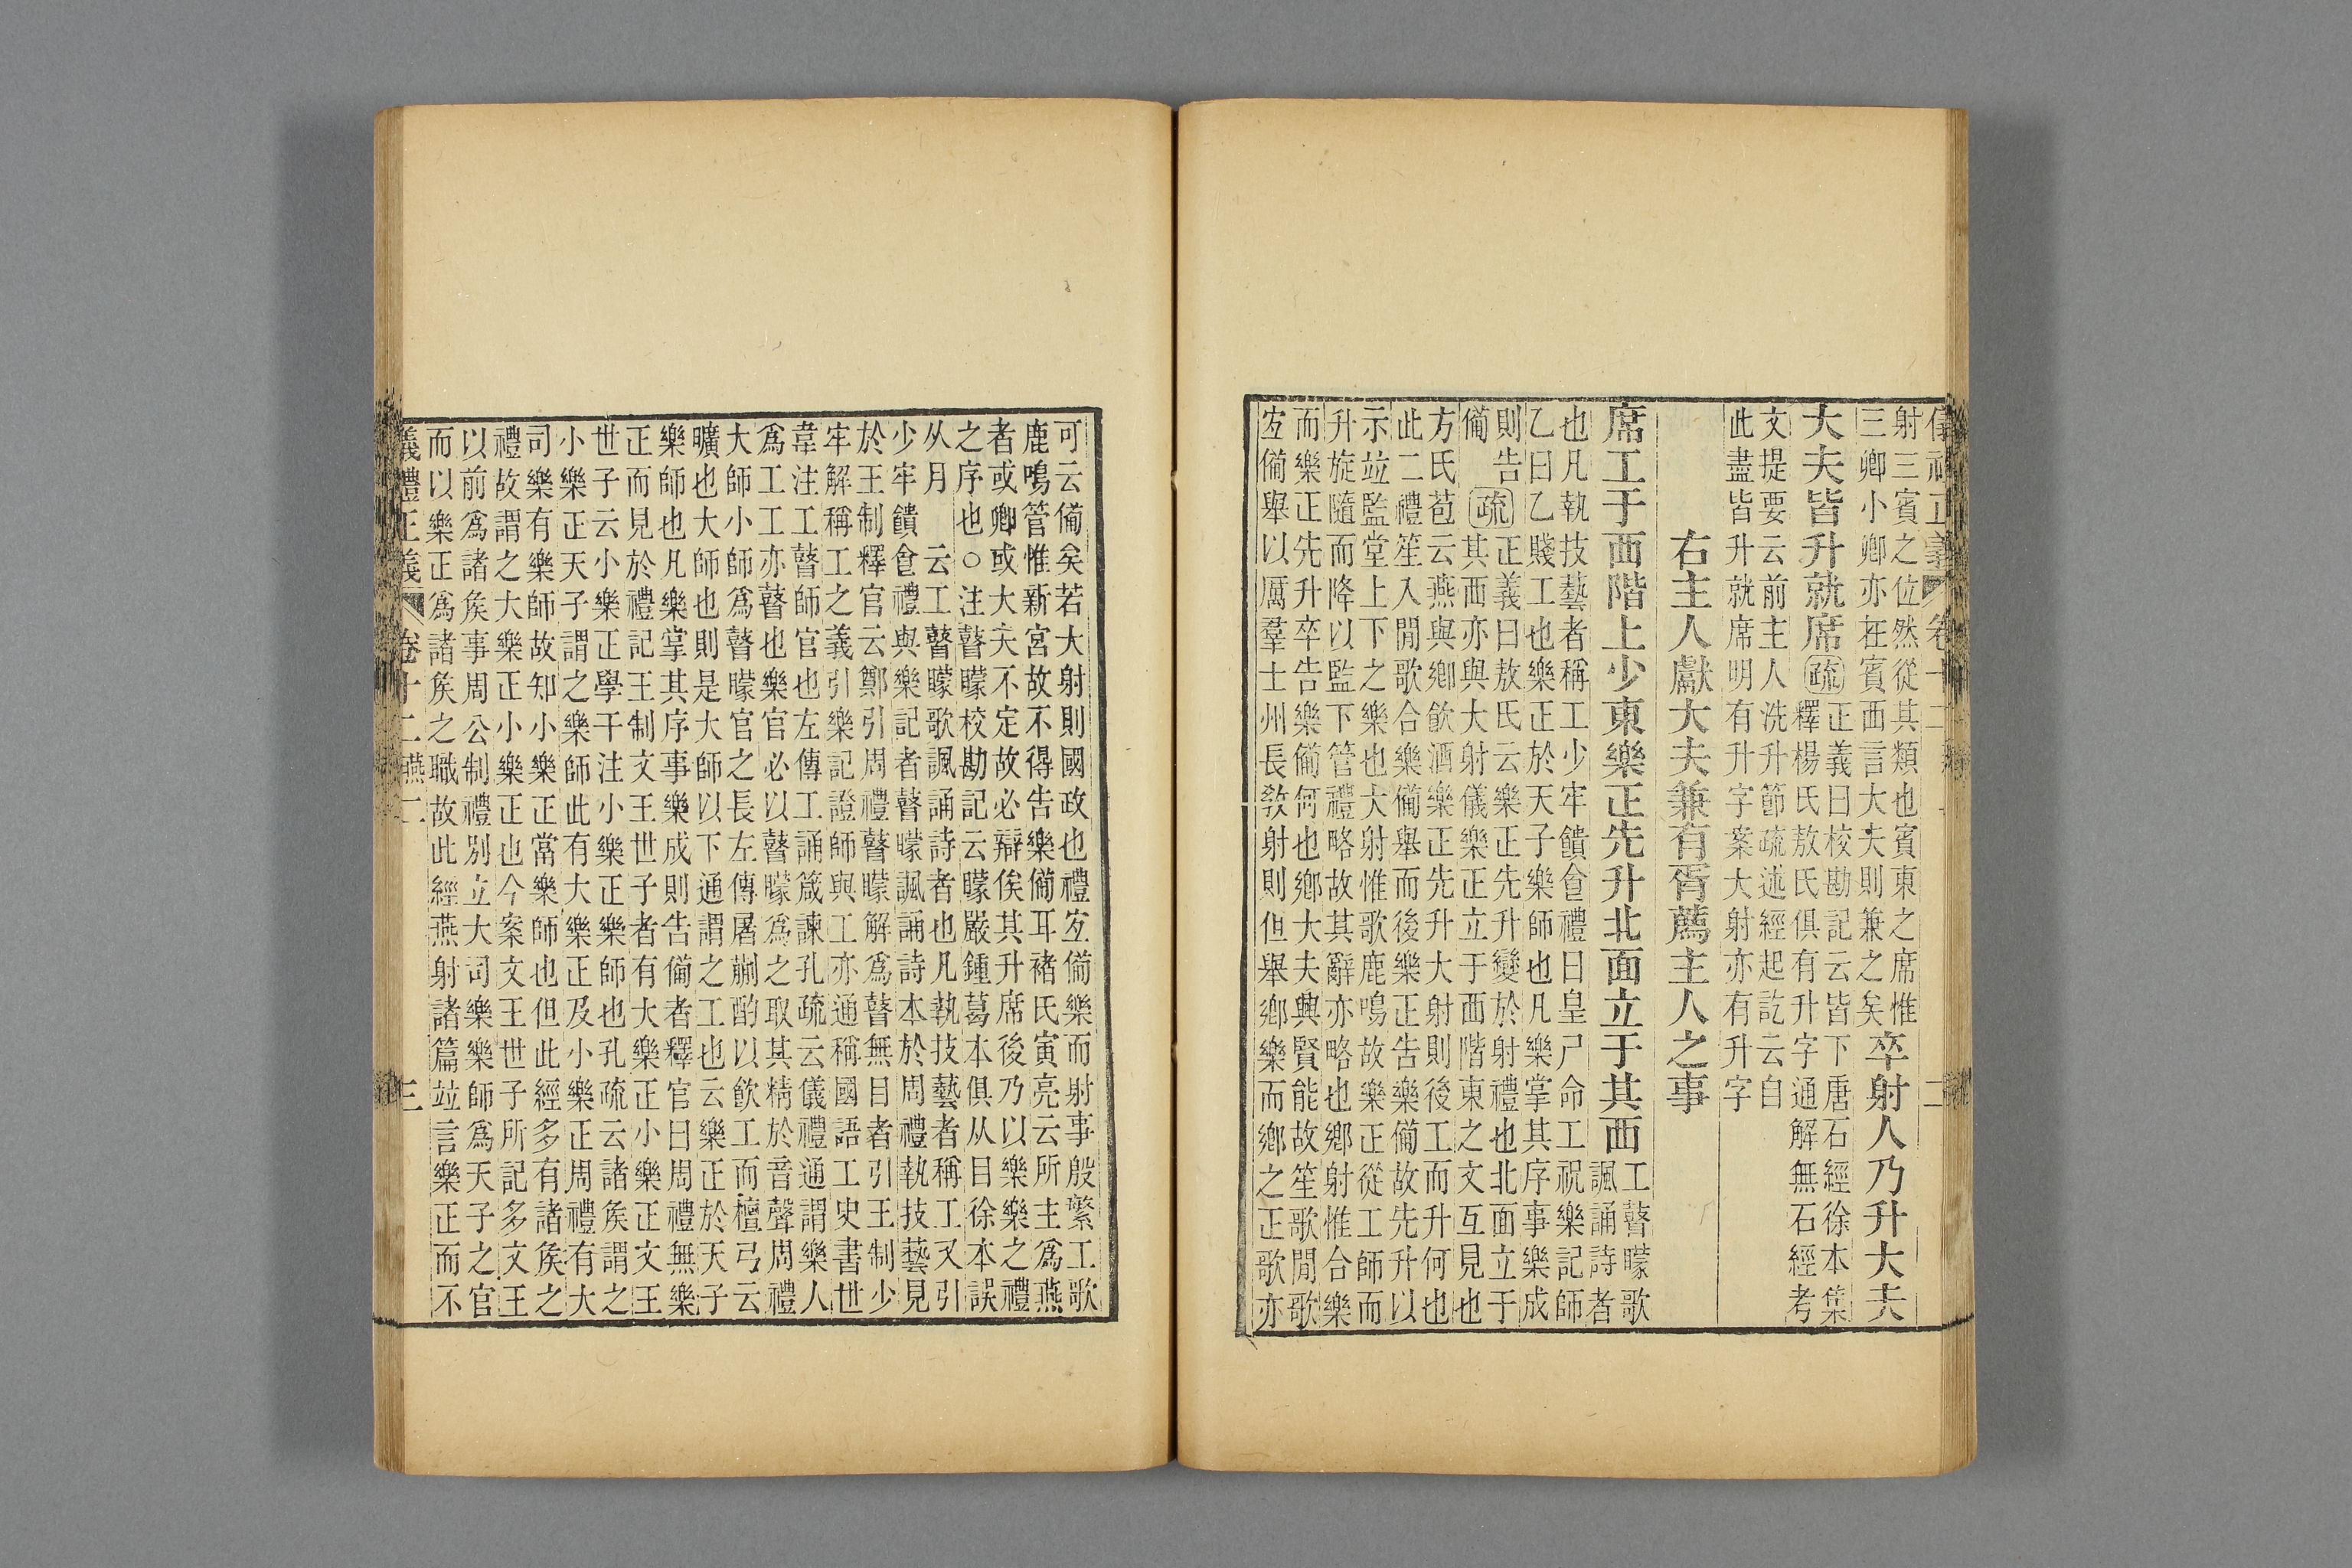 儀禮正義 卷十二 燕 二
射三賓之位然從其類也賓東之席惟
三卿小卿亦在賓西言大夫則兼之矣
卒射人乃升大夫
大夫皆升就席
疏
正義曰校勘記云皆下唐石經徐本集
釋楊氏敖氏俱有升字通解無石經考
文提要云前主人洗升節疏述經起訖云自
此盡皆升就席明有升字案大射亦有升字
右主人獻大夫兼有胥薦主人之事
席工于西階上少東樂正先升北面立于其西
工瞽矇歌
諷誦詩者
也凡執技藝者稱工少牢饋食禮曰皇尸命工祝樂記師
乙曰乙賤工也樂正於天子樂師也凡樂掌其序事樂成
則告
備
疏
正義曰敖氏云樂正先升變於射禮也北面立于
其西亦與大射儀樂正立于西階東之文互見也
方氏苞云燕與鄉飲酒樂正先升大射則後工而升何也
此二禮笙入閒歌合樂備舉而後樂正告樂備故先升以
示竝監堂上下之樂也大射惟歌鹿鳴故樂正從工師而
升旋隨而降以監下管禮略故其辭亦略也鄉射惟合樂
而樂正先升卒告樂備何也鄉大夫與賢能故笙歌閒歌
宐備舉以厲羣士州長敎射則但舉鄉樂而鄉之正歌亦
可云備矣若大射則國政也禮宐備樂而射事殷繁工歌
鹿鳴管惟新宮故不得告樂備耳褚氏寅亮云所主爲燕
者或卿或大夫不定故必辯俟其升席後乃以樂樂之禮
之序也○注瞽矇校勘記云矇嚴鍾葛本俱从目徐本誤
从月　云工瞽矇歌諷誦詩者也凡執技藝者稱工又引
少牢饋食禮與樂記者瞽矇諷誦詩本於周禮執技藝見
於王制釋官云鄭引周禮瞽矇解爲瞽無目者引王制少
牢解稱工之義引樂記證師與工亦通稱國語工史書世
韋注工瞽師官也左傳工誦箴諫孔疏云儀禮通謂樂人
爲工工亦瞽也樂官必以瞽矇爲之取其精於音聲周禮
大師小師爲瞽矇官之長左傳屠蒯酌以飲工而檀弓云
曠也大師也則是大師以下通謂之工也云樂正於天子
樂師也凡樂掌其序事樂成則告備者釋官曰周禮無樂
正而見於禮記王制文王世子者有大樂正小樂正文王
世子云小樂正學干注小樂正樂師也孔疏云諸矦謂之
小樂正天子謂之樂師此有大樂正及小樂正周禮有大
司樂有樂師故知小樂正當樂師也但此經多有諸矦之
禮故謂之大樂正小樂正也今案文王世子所記多文王
以前爲諸矦事周公制禮別立大司樂樂師爲天子之官
而以樂正爲諸矦之職故此經燕射諸篇竝言樂正而不
義禮正義 卷十二 燕二 三